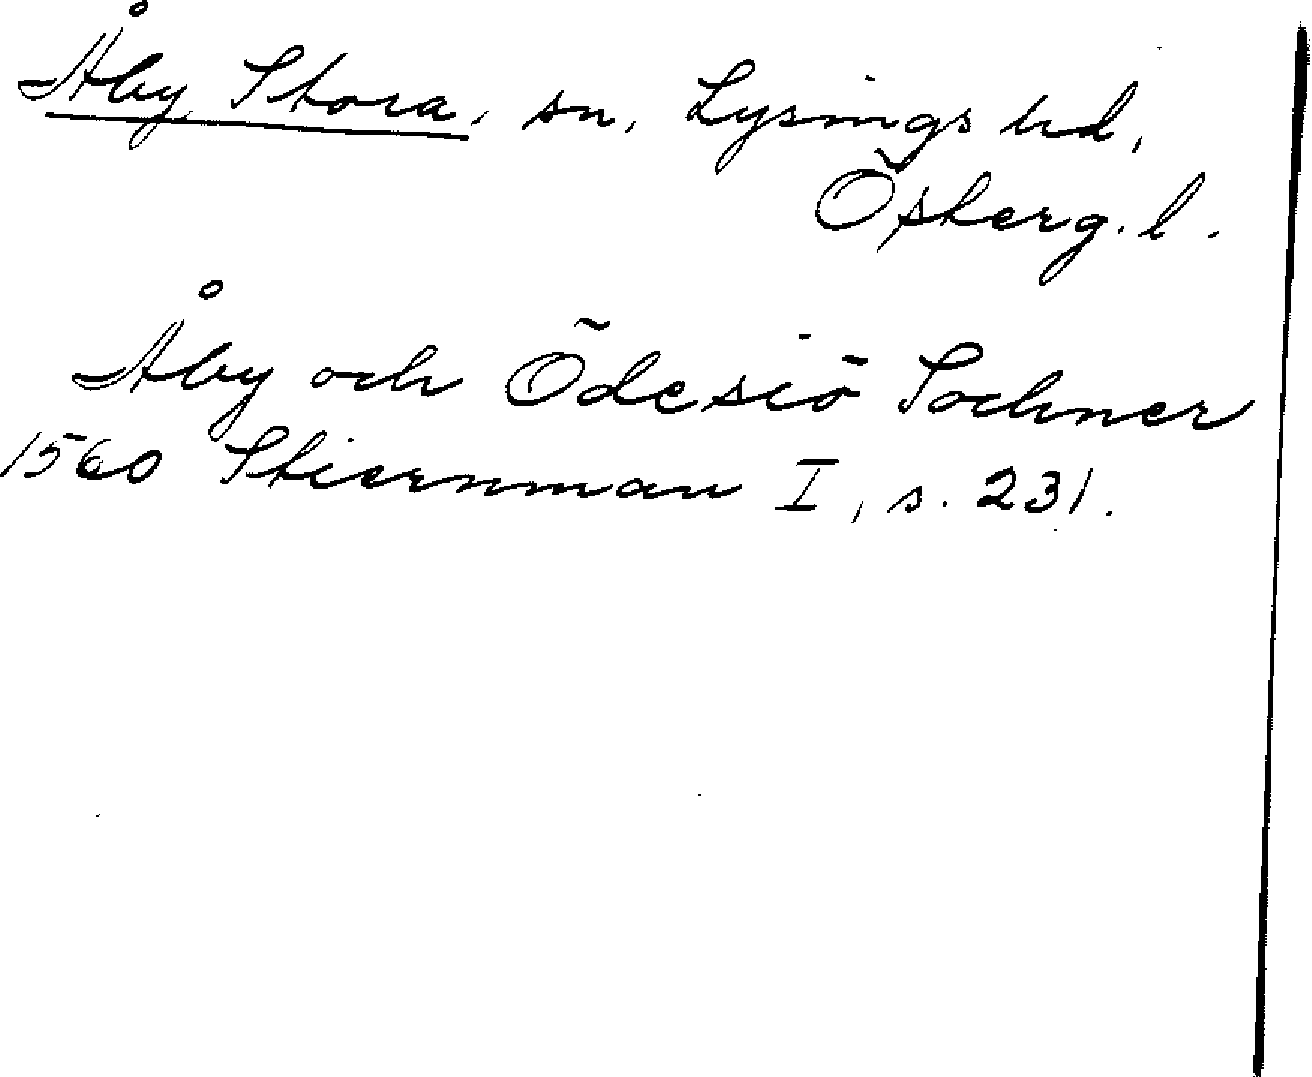 Åby Stora, sn, Lysings hd,
Österg. l.
Åby och Ödesiö Sochner
1560 Stiernman I, s. 231.